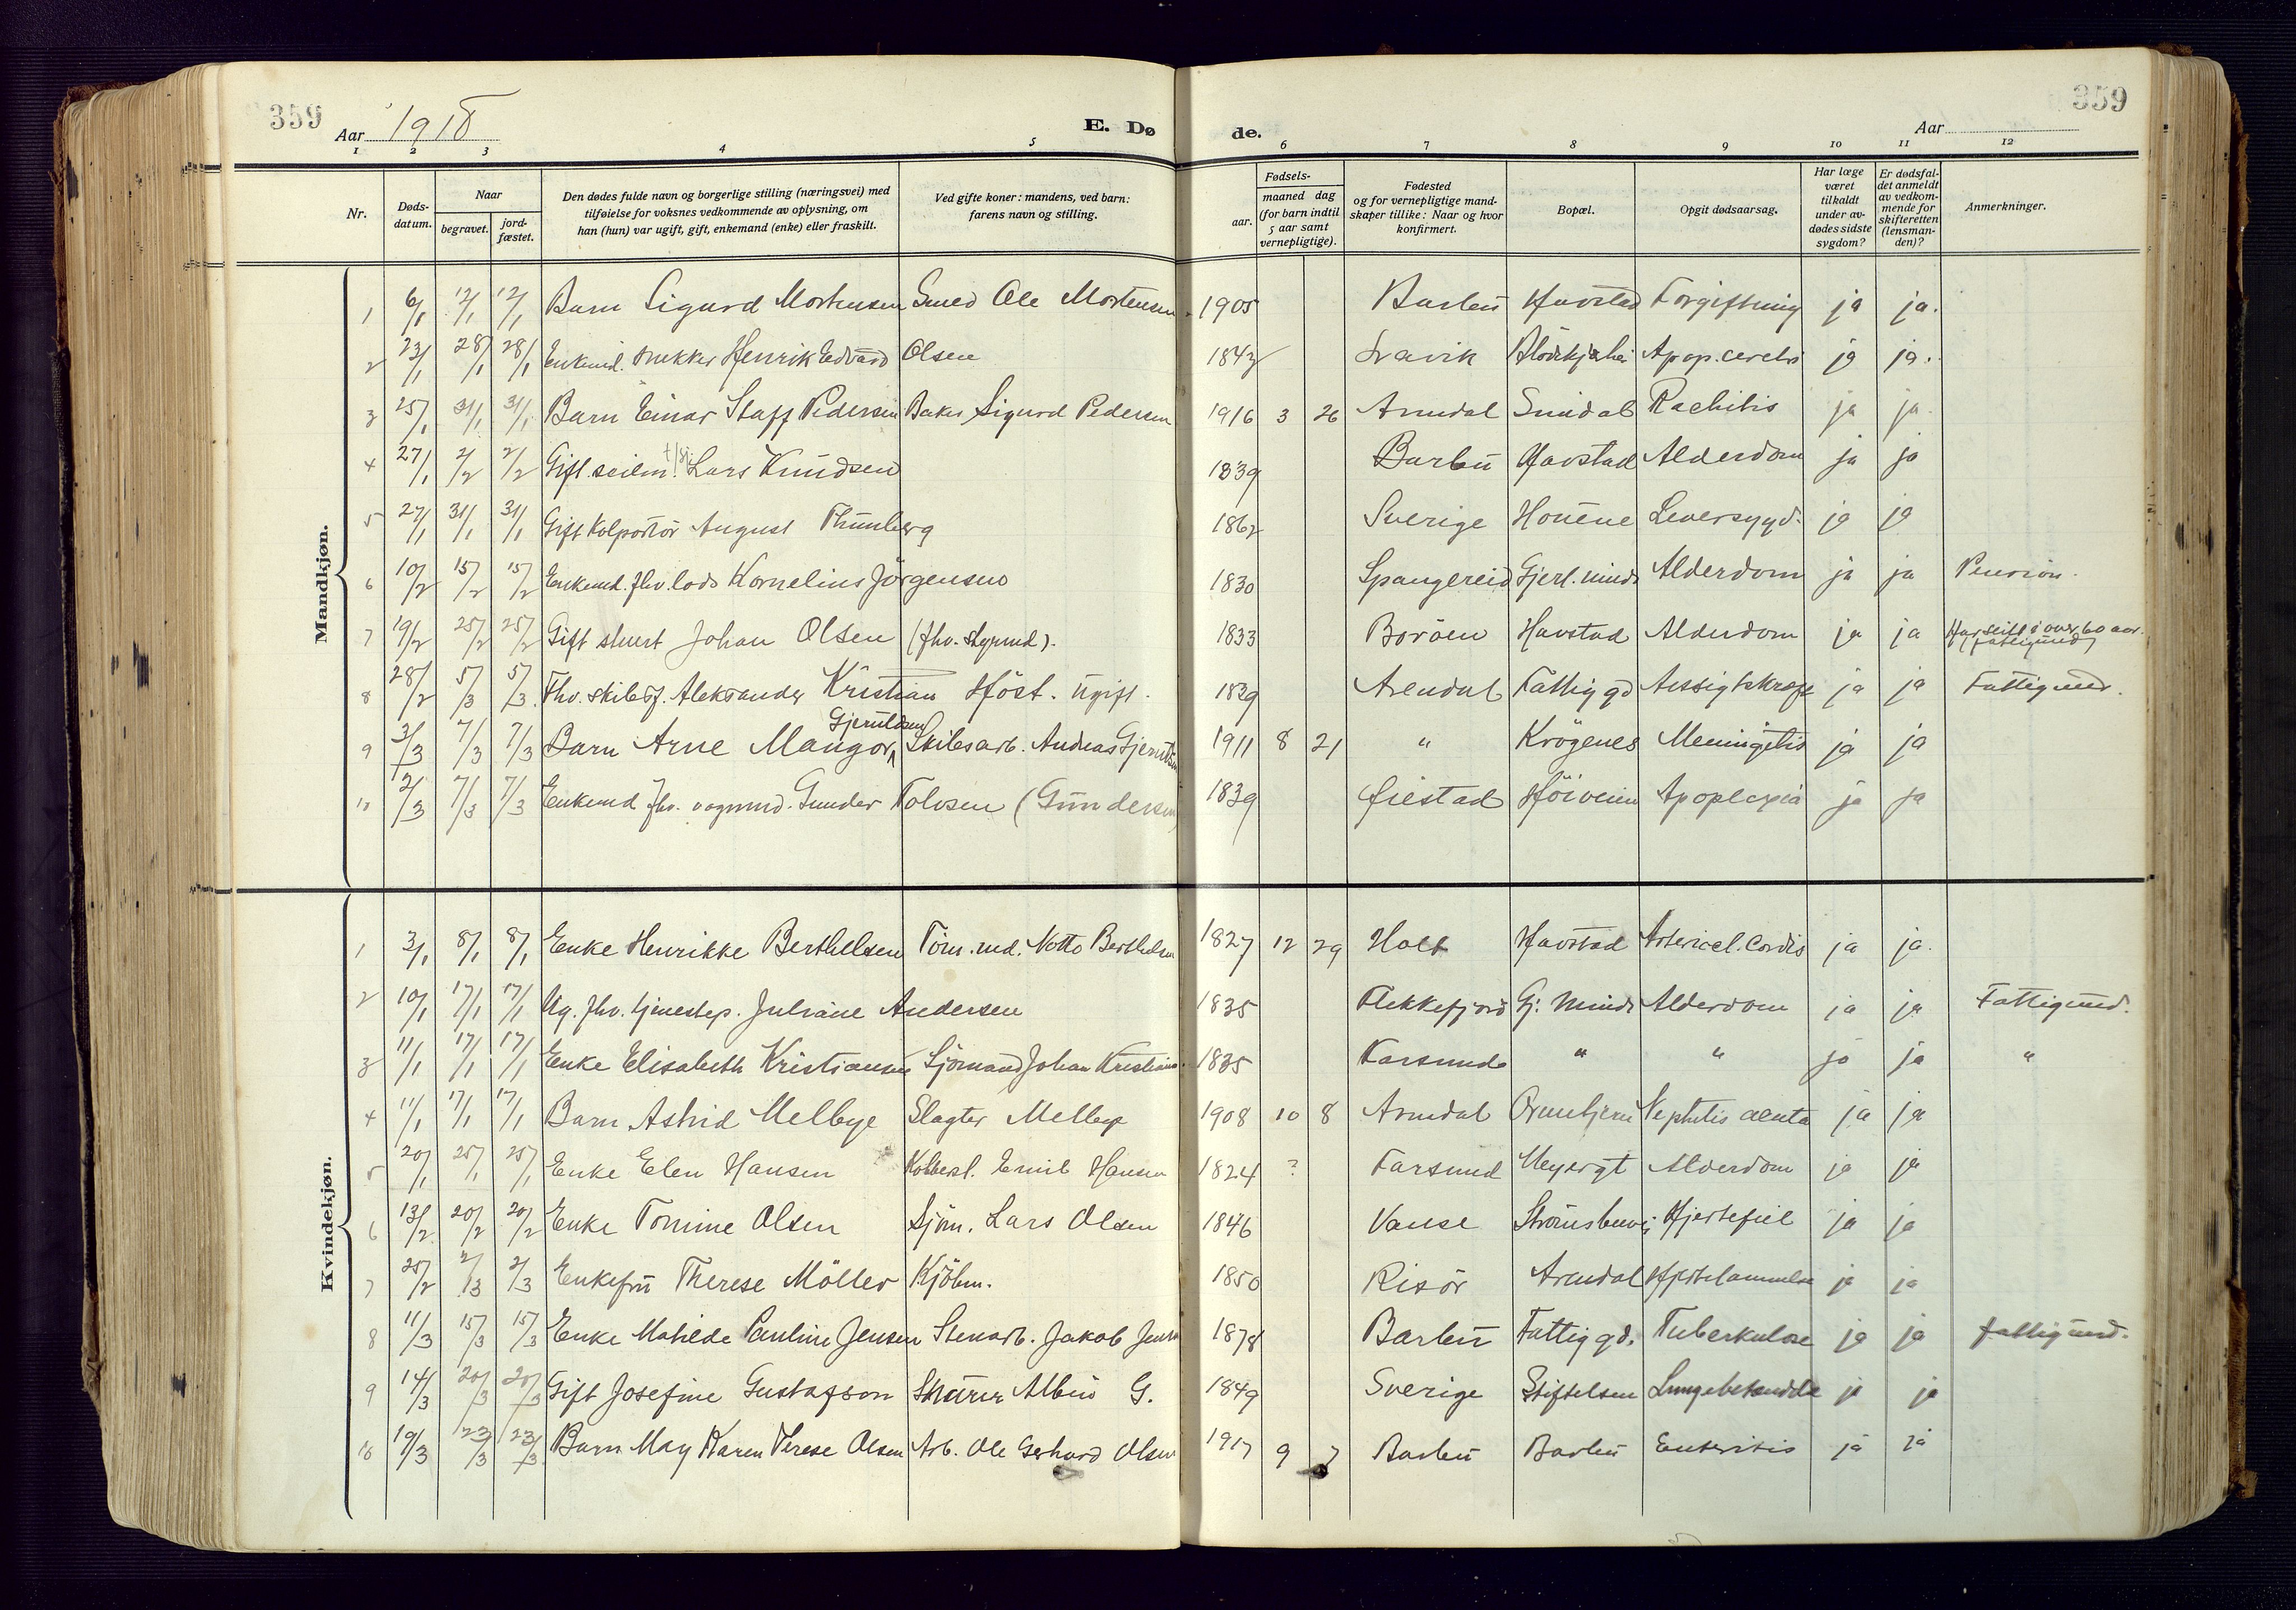 359
Aar 1918
E. Dø
de.
Aar
359
1 2 3 4 5 6 7 8 9 10 11 12
Nr.
Døds-datum.
Naar
begravet.
jord-fæstet.
Den dødes fulde navn og borgerlige stilling (næringsvei) med tilføielse for voksnes vedkommende av oplysning, om han (hun) var ugift, gift, enkemand (enke) eller fraskilt.
Ved gifte koner: mandens, ved barn: farens navn og stilling.
Fødsels-
aar.
maaned dag (for barn indtil 5 aar samt vernepligtige).
Fødested og for vernepligtige mand-skaper tillike: Naar og hvor konfirmert.
Bopæl.
Opgit dødsaarsag.
Har læge været tilkaldt under av-dødes sidste sygdom?
Er dødsfal-det anmeldt av vedkom-mende for skifteretten (lensman-den)?
Anmerkninger.
Mandkjøn.
1 6/1 12/1 12/1 Barn Sigurd Mortensen Smed Ole Mortensen 1905 Barbu Havstad Forgiftning ja ja.
2 23/1 28/1 28/1 Enkemd. snekker Henrik Edvard Olsen 1842 ja ja.
3 25/1 31/1 31/1 Barn Einar Staff Pedersen Baker Sigurd Pedersen 1916 3 26 Arendal Rachitis ja ja
4 27/1 2/2 2/2 Gift seilm. Lars Knudsen 1839 Barbu Havstad Alderdom ja ja
5 27/1 31/1 31/1 Gift Kolportør August Thunberg 1862 Sverige Houene Leversygd. ja ja
6 10/2 15/2 15/2 Enkemd. fhv. lods Kornelius Jörgensen 1830 Spangereid Gjerl. minde Alderdom ja ja Pension.
7 19/2 25/2 25/2 Gift stuert Johan Olsen (fhv. styrmd). 1833 Boröen Havstad Alderdom ja ja Har seilt i over 60 aar. Fattigund
8 28/2 5/3 5/3 Fhv. skibsf. Aleksander Kristian Höst. Ugift. 1839 Arendal Fattiggd ja ja Fattigund.
9 3/3 7/3 7/3 Barn Arne Mangor Gjeruldsen Skibsarb. Andreas Gjeruldsen 1911 8 21 " Krögenes Meningitis ja ja
10 2/3 7/3 7/3 Enkemd fhv. vognmd. Gunder Tolvsen (Gundersen) 1839 Öiestad Apoplexia ja ja
Kvindekjøn.
1 3/1 8/1 8/1 Enke Henrikke Berthelsen Töm. md. Notto Berthelsen 1827 12 29 Holt Havstad Cordis ja ja.
2 10/1 17/1 17/1 Ug. fhv. tjenestep. Juliane Andersen 1835 Flekkefjord Gj. Minde Alderdom ja ja Fattigund.
3 11/1 17/1 17/1 Enke Elisabeth Kristiansen Sjömand Johan Kristians. 1835 Farsund " " ja ja "
4 11/1 17/1 17/1 Barn Astrid Melbye Slagter Melbye 1908 10 8 Arendal Nephritis acuta ja ja
5 20/1 25/1 25/1 Enke Elen Hansen Emil Hansen 1824 ? Farsund Meyergt Alderdom ja ja
6 13/2 20/2 20/2 Enke Tomine Olsen Sjöm. Lars Olsen 1846 Vanse Hjertefeil ja ja
7 25/2 2/3 2/3 Enkefru Therese Möller Kjöbm. 1850 Risör Arendal Hjertelammelse ja ja
8 11/3 15/3 15/3 Enke Matilde Pauline Jensen Stenarb. Jakob Jensen 1878 Barbu Fattiggd. Tuberkulose ja ja Fattigund.
9 14/3 20/3 20/3 Gift Josefine Gustafson Albin G. 1849 Sverige Stiftelsen Lungebetændelse ja ja
10 19/3 23/3 23/3 Barn May Karen Terese Olsen Arb. Ole Gerhard Olsen 1917 9 7 Barbu Barbu Enteritis ja ja